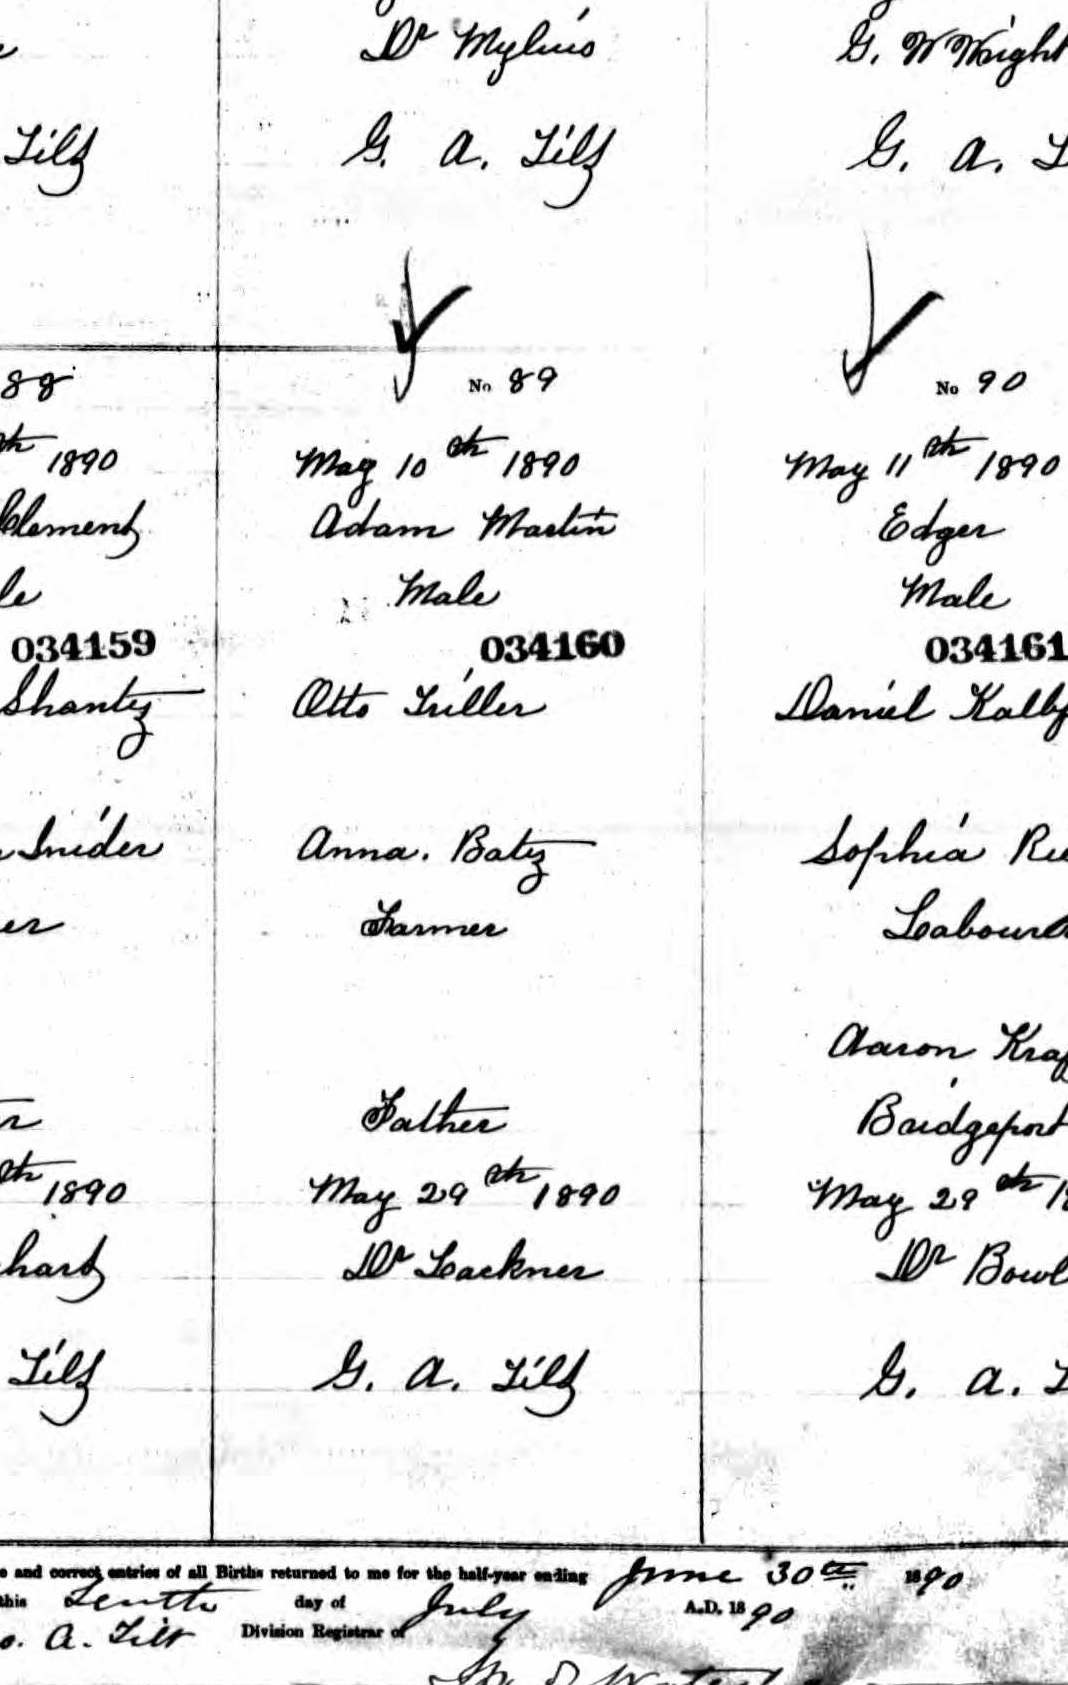 Dr Mylius
G. W Wright
Tilt
G. A. Tilt
G. A.
88
No 89
No 90
th 1890
May 10th 1890
May 11th 1890
Clement
Adam Martin
Edger
le
Male
Male
034159
034160
034161
Shantz
Otto Triller
Daniel Kalbf
Snider
Anna. Batz
Sophia
er
Farmer
Labourer
Aaron Kraf
r
Father
Bridgeport
th 1890
May 29th 1890
May 29th 18
hart
Dr Lackner
Dr Bowl
Tilt
G. A. Tilt
G. A.
e and correct entries of all Births returned to me for the half-year ending June 30th 1890
this Tenth day of July A.D. 1890
o. A. Tilt Division Registrar of